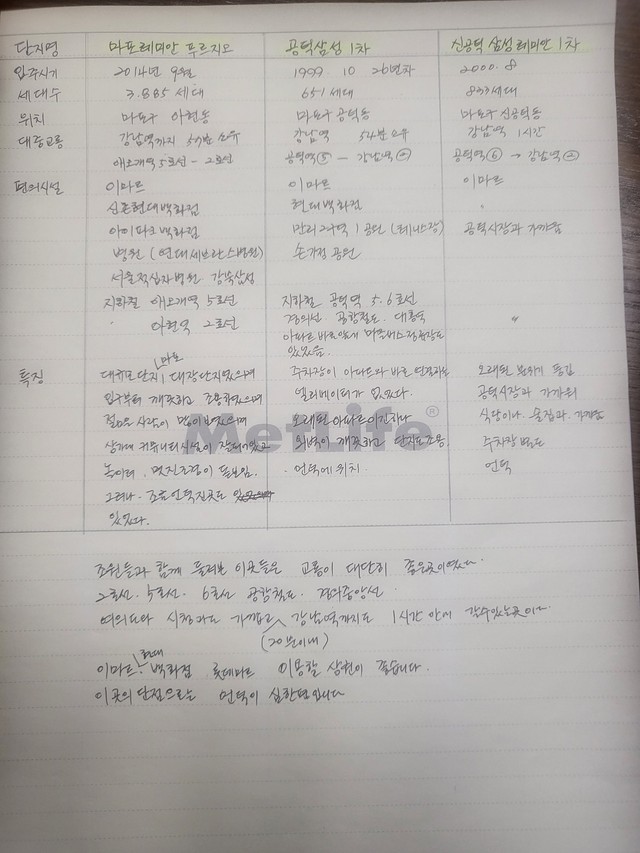 단지명 마포레미안 푸르지오 공덕삼성 1차 신공덕 삼성레미안 1차
입주시기 2014년 9월 1999 10 26년차 2000. 8
세대수 3.885 세대 651 세대 833세대
위치 마포구 아현동 마포구 공덕동 마포구 신공덕동
대중교통 강남역까지 소유 강남역 54분 소유 강남역 1시간
애오개역 5호선 - 2호선 공덕역⑤ - 강남역② 공덕역⑥ → 강남역②
편의시설 이마트 이마트 이마트
신촌현대백화점 현대백화점 "
아이파크백화점 만리 공원 (테니스장) 공덕시장과 가까움
병원 (연대세브란스병원) 손기정 공원
서울적십자병원 강북삼성
지하철 애오개역 5호선 지하철 공덕역 5. 6호선
" 아현역 2호선 경의선 공항철도. 대흥역 "
아파트 바로앞에 마을버스 정류장도
있었음
특징 대규모단지 마포 대장단지였으며 주차장이 아파트와 바로 연결되는 오래된 분위기 풍김
입구부터 깨끗하고 조용하였으며 엘리베이터가 없었다. 공덕시장과 가까워
젊은 사람이 많이보였으며 오래된아파트이긴하나 식당이나 술집과 가까움
상가와 커뮤니티시설이 잘되어있고 외벽이 깨끗하고 단지도조용 주차장 별도
놀이터. 멋진조경이 돋보임. . 언덕에 위치 언덕
그러나. 조금언덕진곳도
있었다.
MetLife®
조원들과 함께 둘러본 이곳들은 교통이 대단히 좋은곳이였다.
2호선. 5호선. 6호선 공항철도. 경의중앙선
여의도와 시청과도 가깝고 (20분이내) 강남역까지도 1시간 안에 갈수있는곳이다
이마트. 현대백화점 롯데마트 이용할 상권이 좋습니다.
이곳의단점으로는 언덕이 심한편입니다